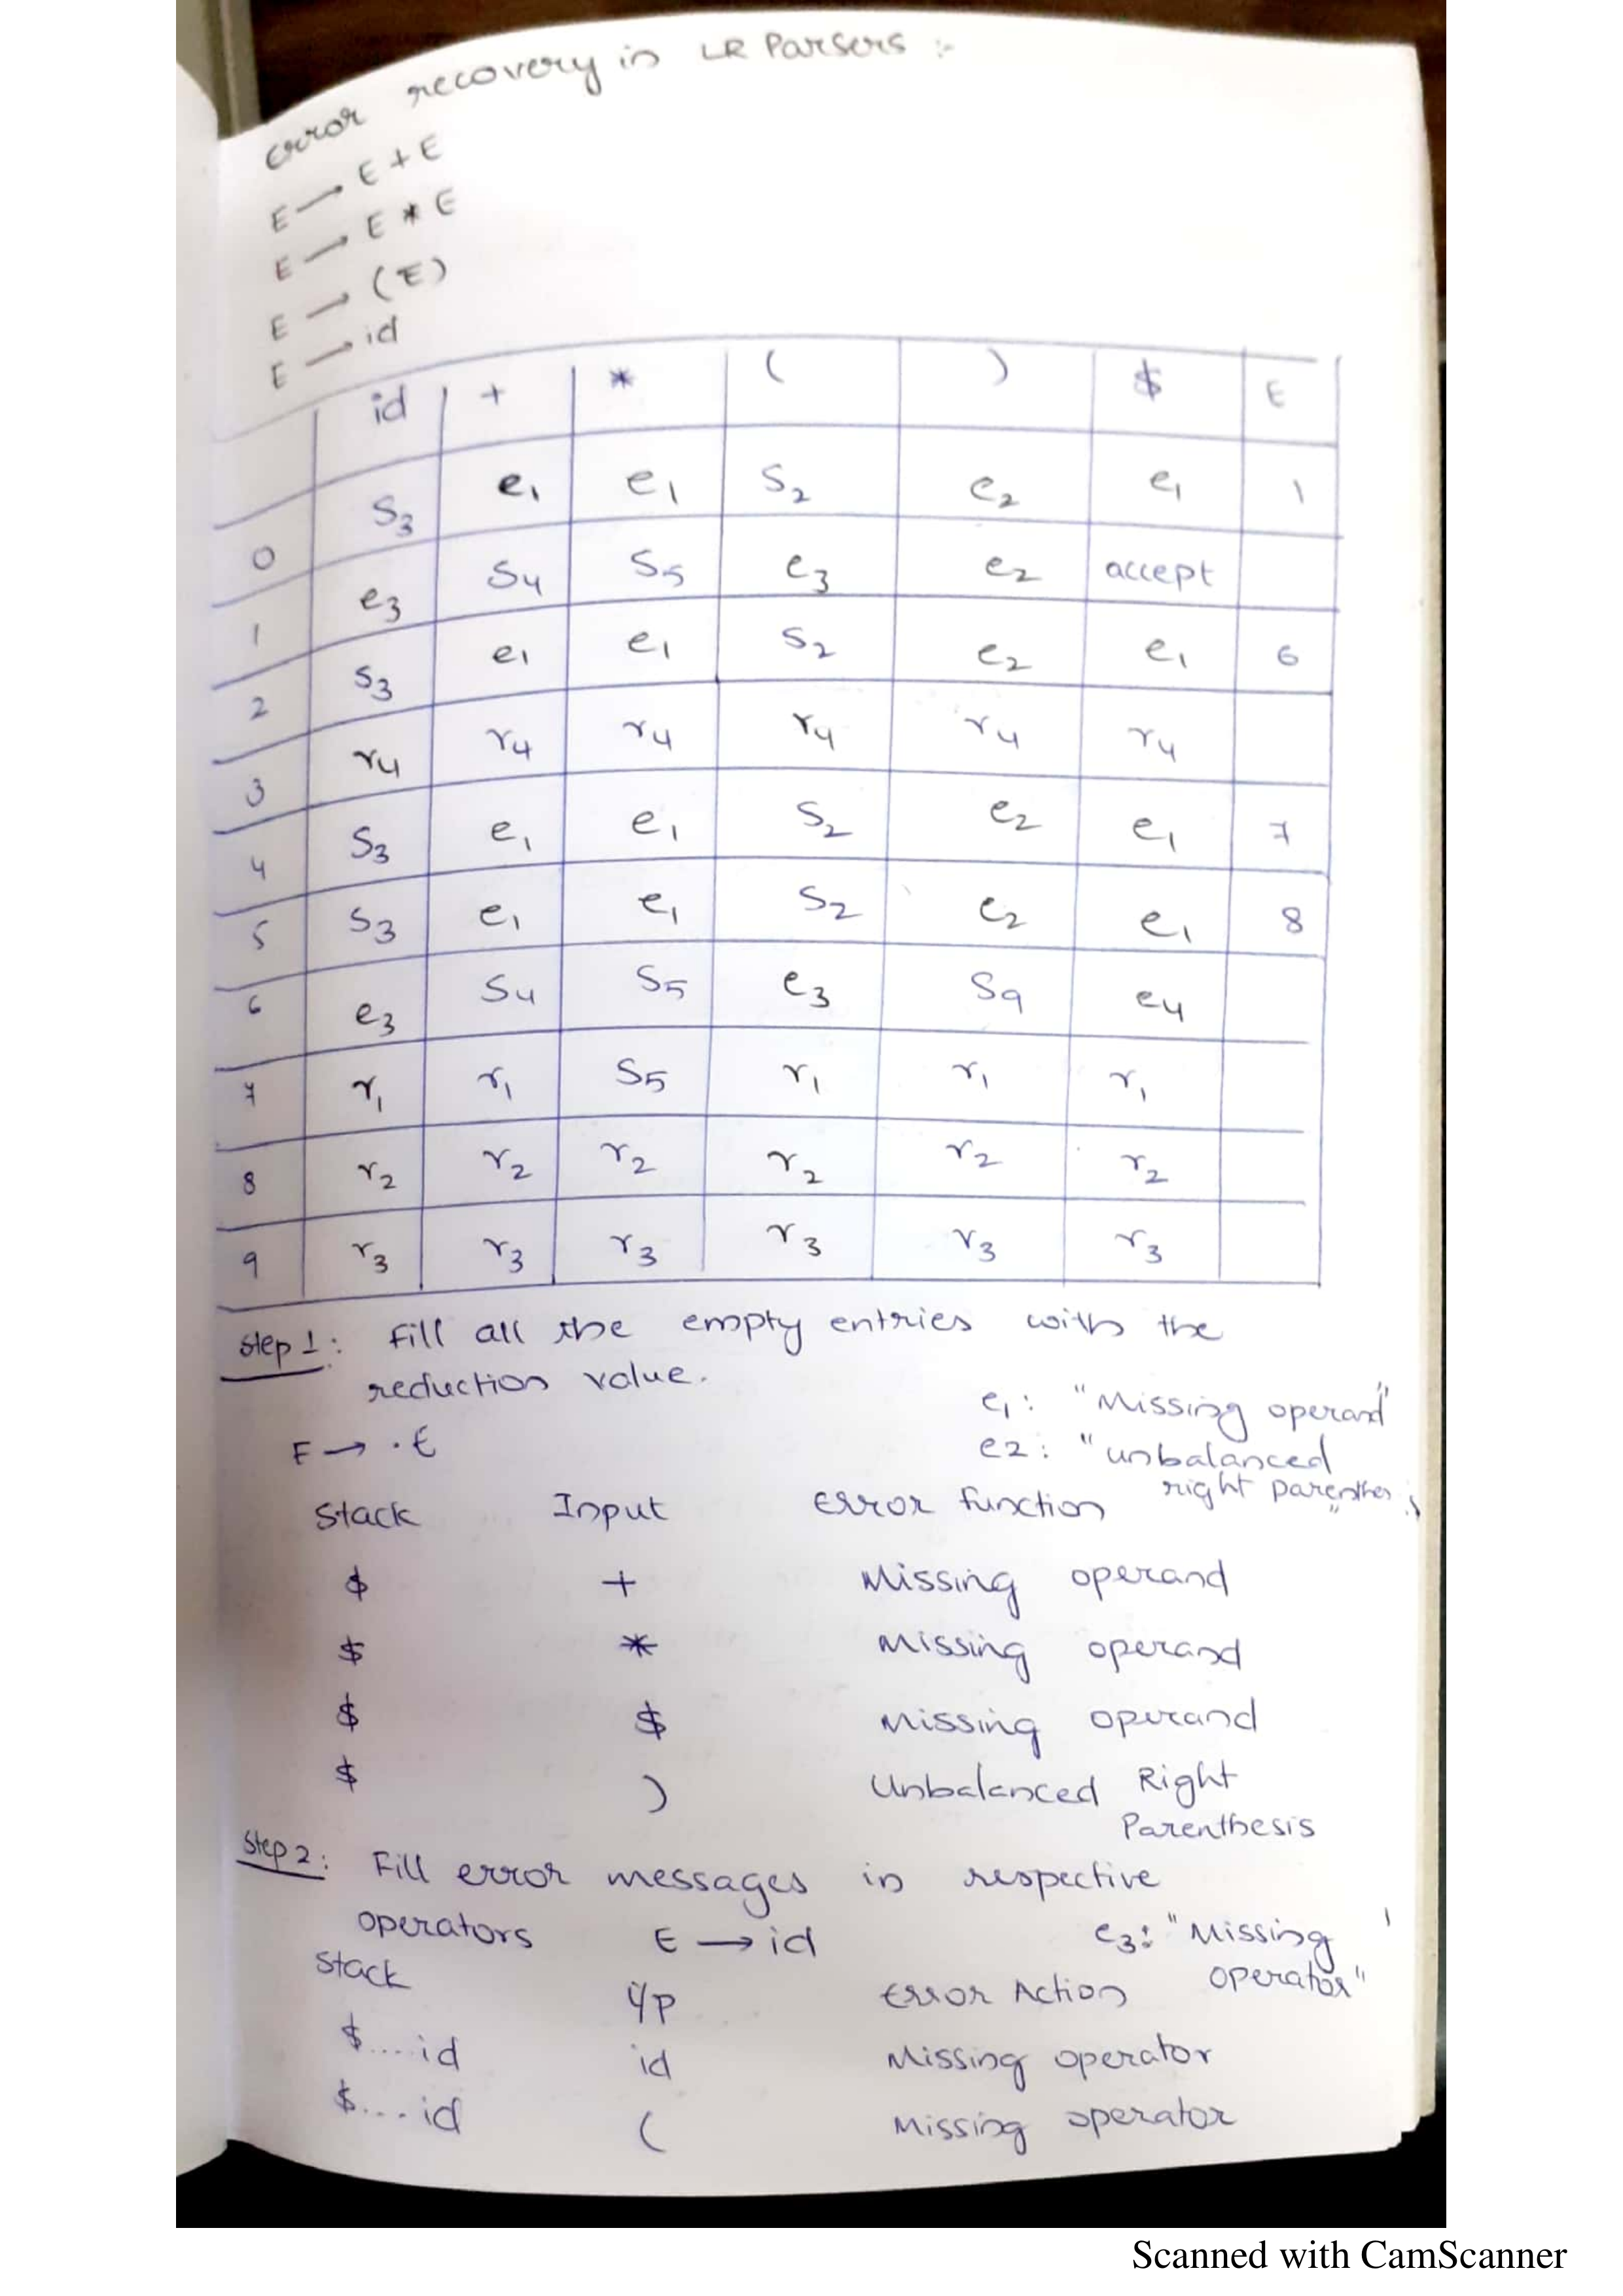 Error recovery in LR Parsers :-
E → E + E
E → E * E
E → (E)
E → id
id + * ( ) $ E
0 S3 e1 e1 S2 e2 e1 1
1 e3 S4 S5 e3 e2 accept
2 S3 e1 e1 S2 e2 e1 6
3 r4 r4 r4 r4 r4 r4
4 S3 e1 e1 S2 e2 e1 7
5 S3 e1 e1 S2 e2 e1 8
6 e3 S4 S5 e3 S9 e4
7 r1 r1 S5 r1 r1 r1
8 r2 r2 r2 r2 r2 r2
9 r3 r3 r3 r3 r3 r3
Step 1: Fill all the empty entries with the
reduction value.
e1: "Missing operand"
E → ·E
e2: "unbalanced
right parenthesis"
Stack Input Error function
$ + Missing operand
$ * Missing operand
$ $ Missing operand
$ ) Unbalanced Right
Parenthesis
Step 2: Fill error messages in respective
operators E → id
e3: "Missing
operator"
Stack i/p Error Action
$....id id Missing operator
$....id ( Missing operator
Scanned with CamScanner